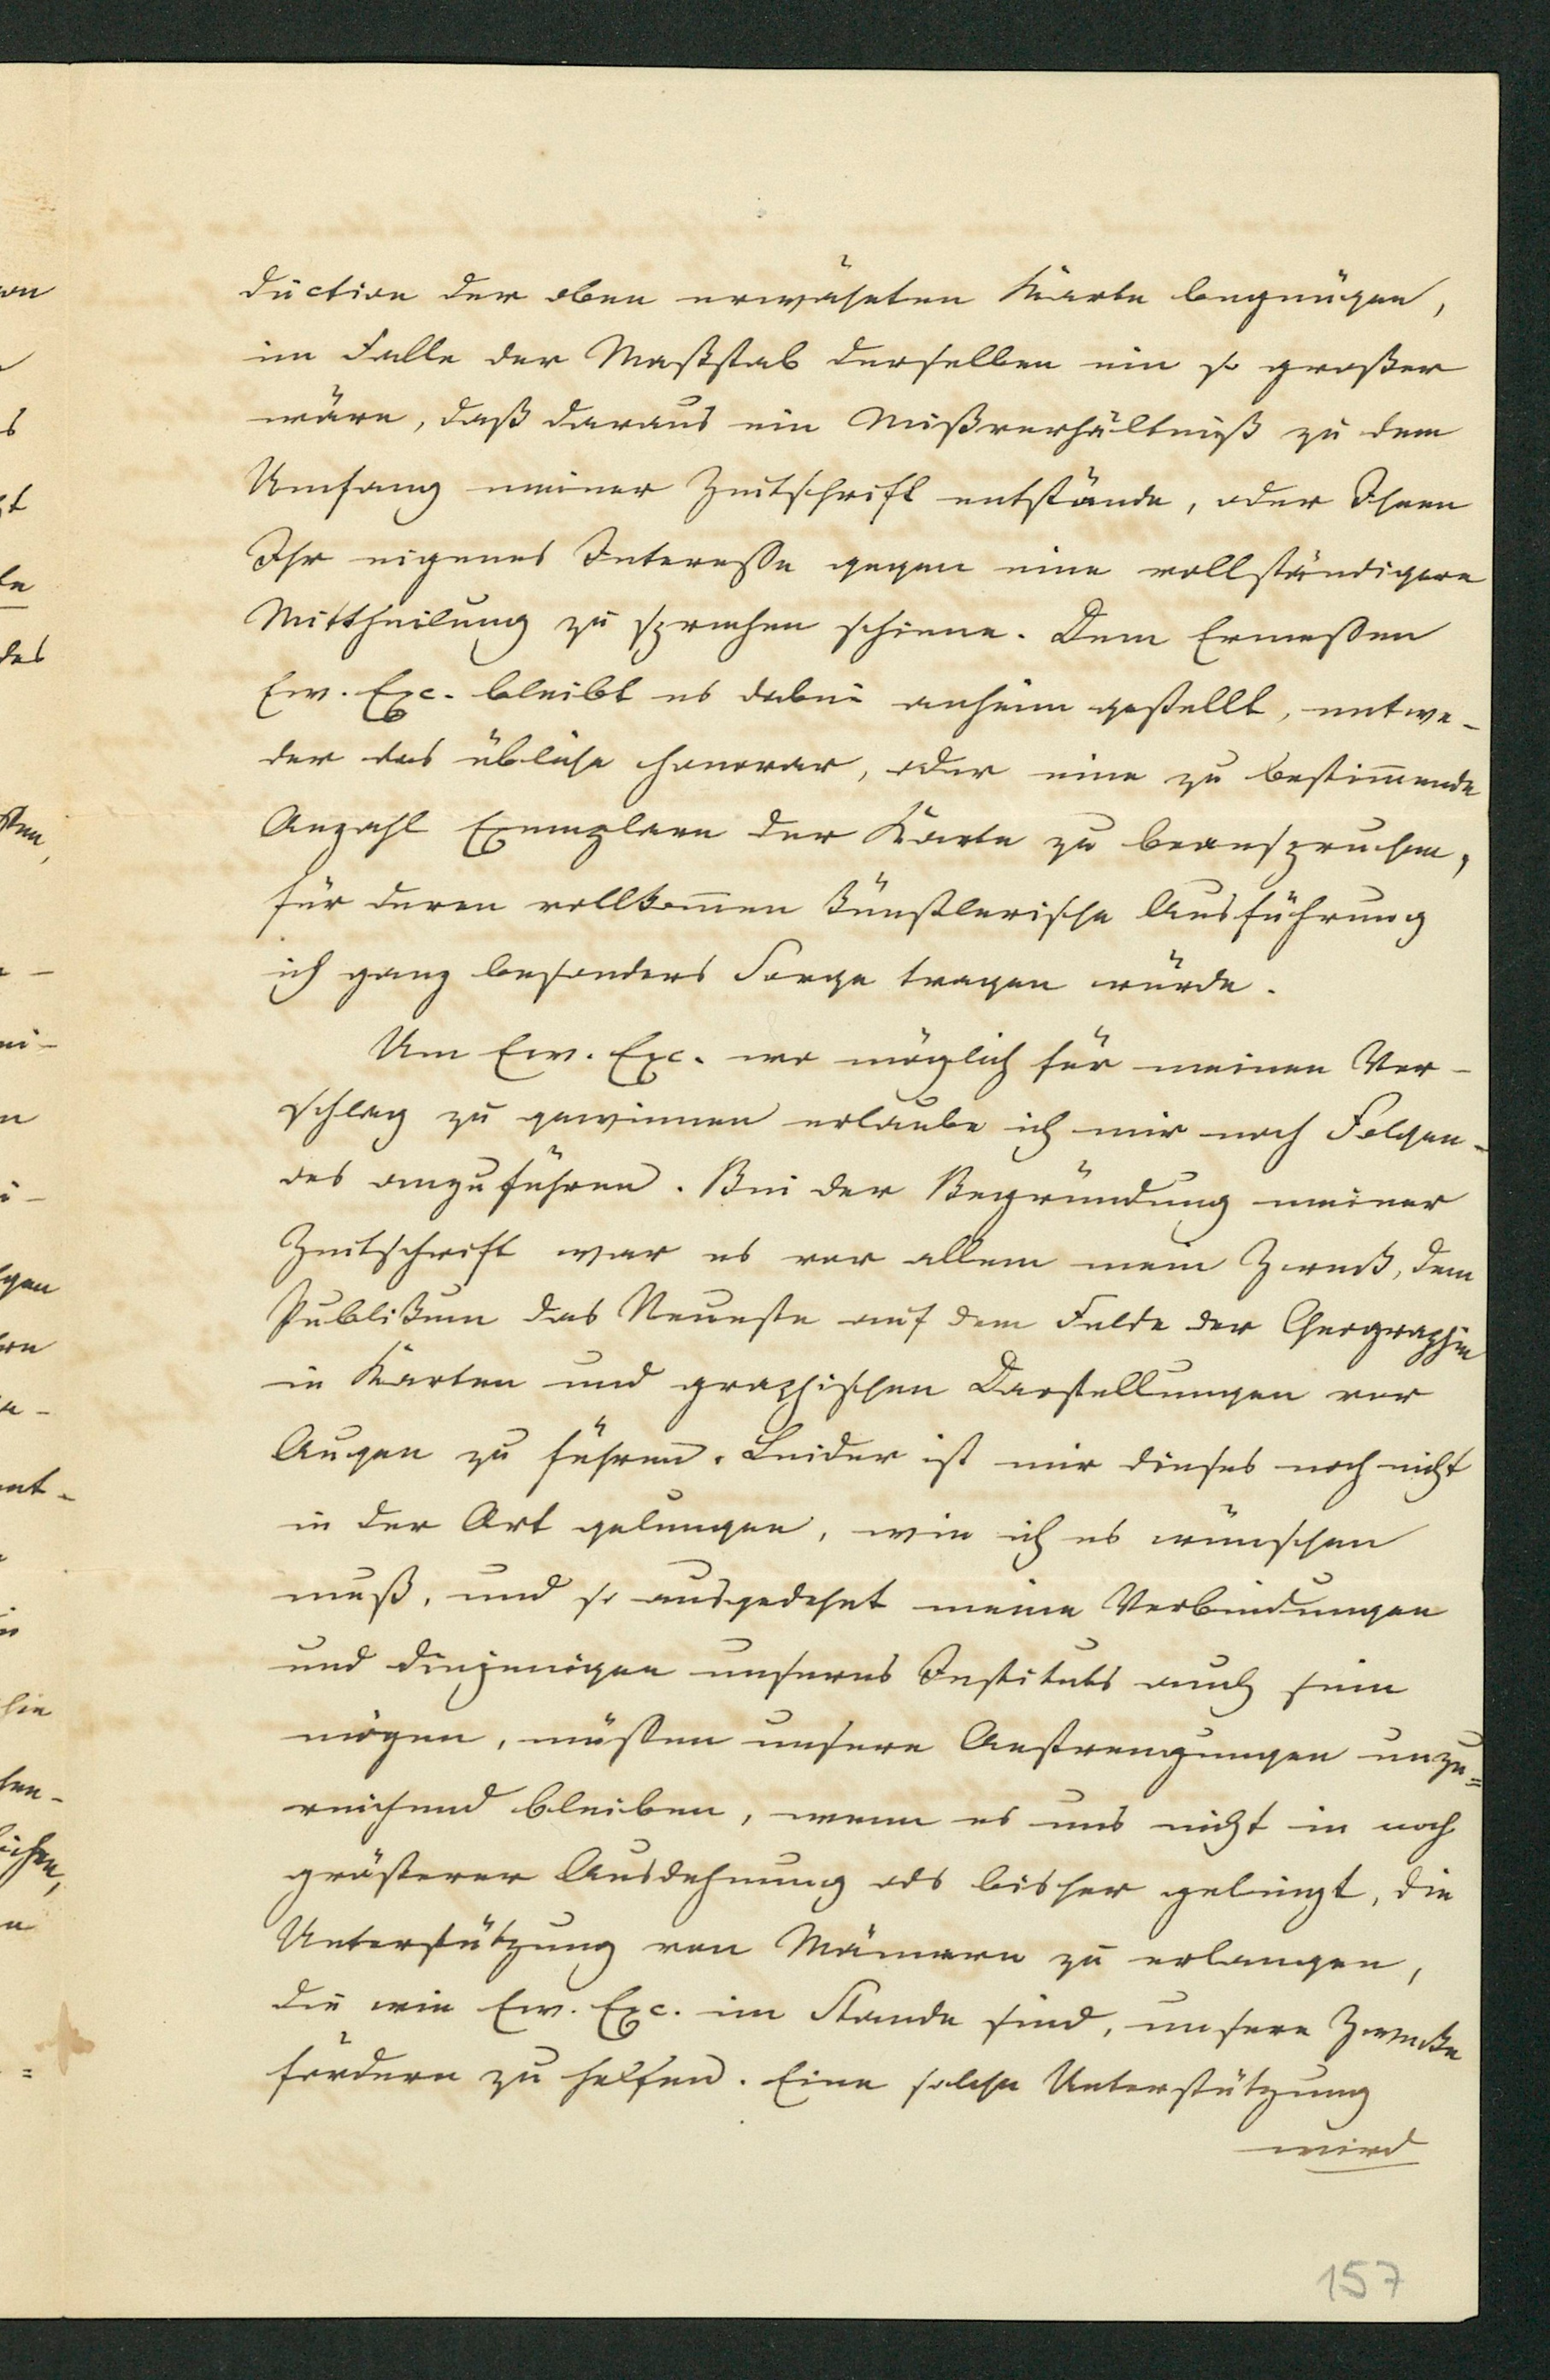 duction der oben erwähnten Karte begnügen,
im Falle der Maßstab derselben ein so großer
wäre, daß daraus ein Mißverhältniß zu dem
Umfang meiner Zeitschrift entstände, oder Ihnen
Ihr eigenes Interesse gegen eine vollständigere
Mittheilung zu sprechen schiene. Dem Ermessen
Ew. Exc. bleibt es dabei anheim gestellt, entwe-
der das übliche Honorar, oder eine zu bestim̄ende
Anzahl Exemplare der Karte zu beanspruchen,
für deren vollkom̄en künstlerische Ausführung
ich ganz besonders Sorge tragen würde.
Um Ew. Exc. wo möglich für meinen Vor-
schlag zu gewinnen erlaube ich mir noch Folgen-
des anzuführen. Bei der Begründung meiner
Zeitschrift war es vor allem mein Zweck, dem
Publikum das Neueste auf dem Felde der Geographie
in Karten und graphischen Darstellungen vor
Augen zu führen. Leider ist mir dieses noch nicht
in der Art gelungen, wie ich es wünschen
muß, und so ausgedehnt meine Verbindungen
und diejenigen unseres Instituts auch sein
mögen, müssen unsere Anstrengungen unzu=
reichend bleiben, wenn es uns nicht in noch
größerer Ausdehnung als bisher gelingt, die
Unterstützung von Männern zu erlangen,
die wie Ew. Exc. im Stande sind, unsere Zwecke
fördern zu helfen. Eine solche Unterstützung
wird
157